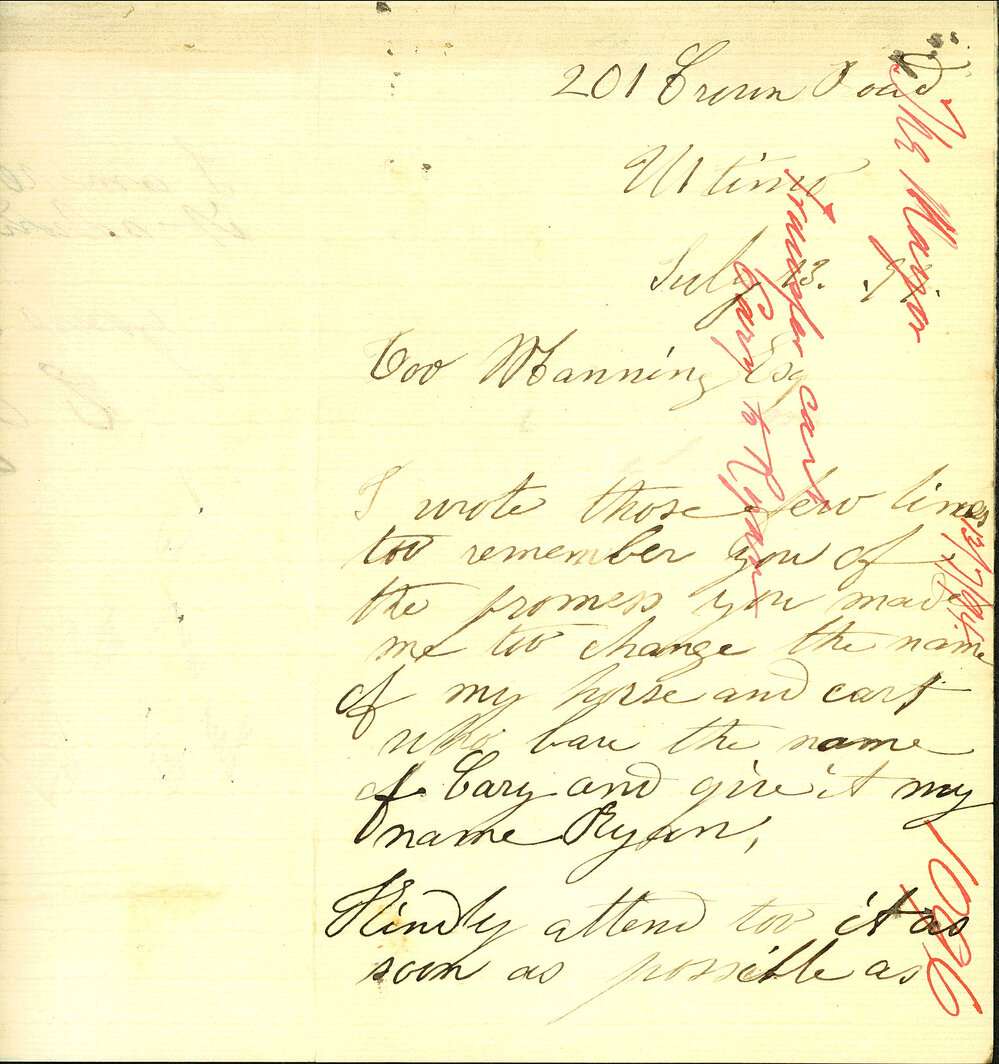 201 Crown Road
Ultimo
July 13. .91.
Too Manning Esq
I wrote those few lines
too remember you of
the promess you made
me too change the name
of my horse and cart
who bare the name
of Cary and give it my
name Ryan,
Kindly attend too it as
soon as possible as
The Mayor
transfer cart
Cary to Ryan
13/7/91
1096